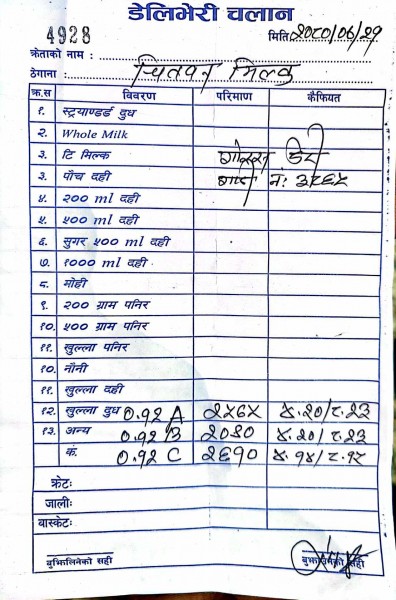 डेलिभेरी चलान
4928
मिति: २०८०/०६/२९
क्रेताको नाम :
ठेगाना : चितवन मिल्क
क्र.स विवरण परिमाण कैफियत
१. स्ट्रयाण्डर्ड दुध
२. Whole Milk
३. टि मिल्क
३. पौच दही गाडी नं: ३२६५
४. २०० ml दही
५. ५०० ml दही
६. सुगर ५०० ml दही
७. १००० ml दही
८. मोही
९. २०० ग्राम पनिर
१०. ५०० ग्राम पनिर
११. खुल्ला पनिर
१०. नौनी
११. खुल्ला दही
१२. खुल्ला दुध ०.१२ A २५६५ ४.२०/८.२३
१३. अन्य ०.१२ B २०३० ४.२०/८.२३
कं. ०.१२ C २६१० ४.१५/८.१८
क्रेट:
जाली:
वास्केट:
बुझिलिनेको सही बुझाउनेको सही